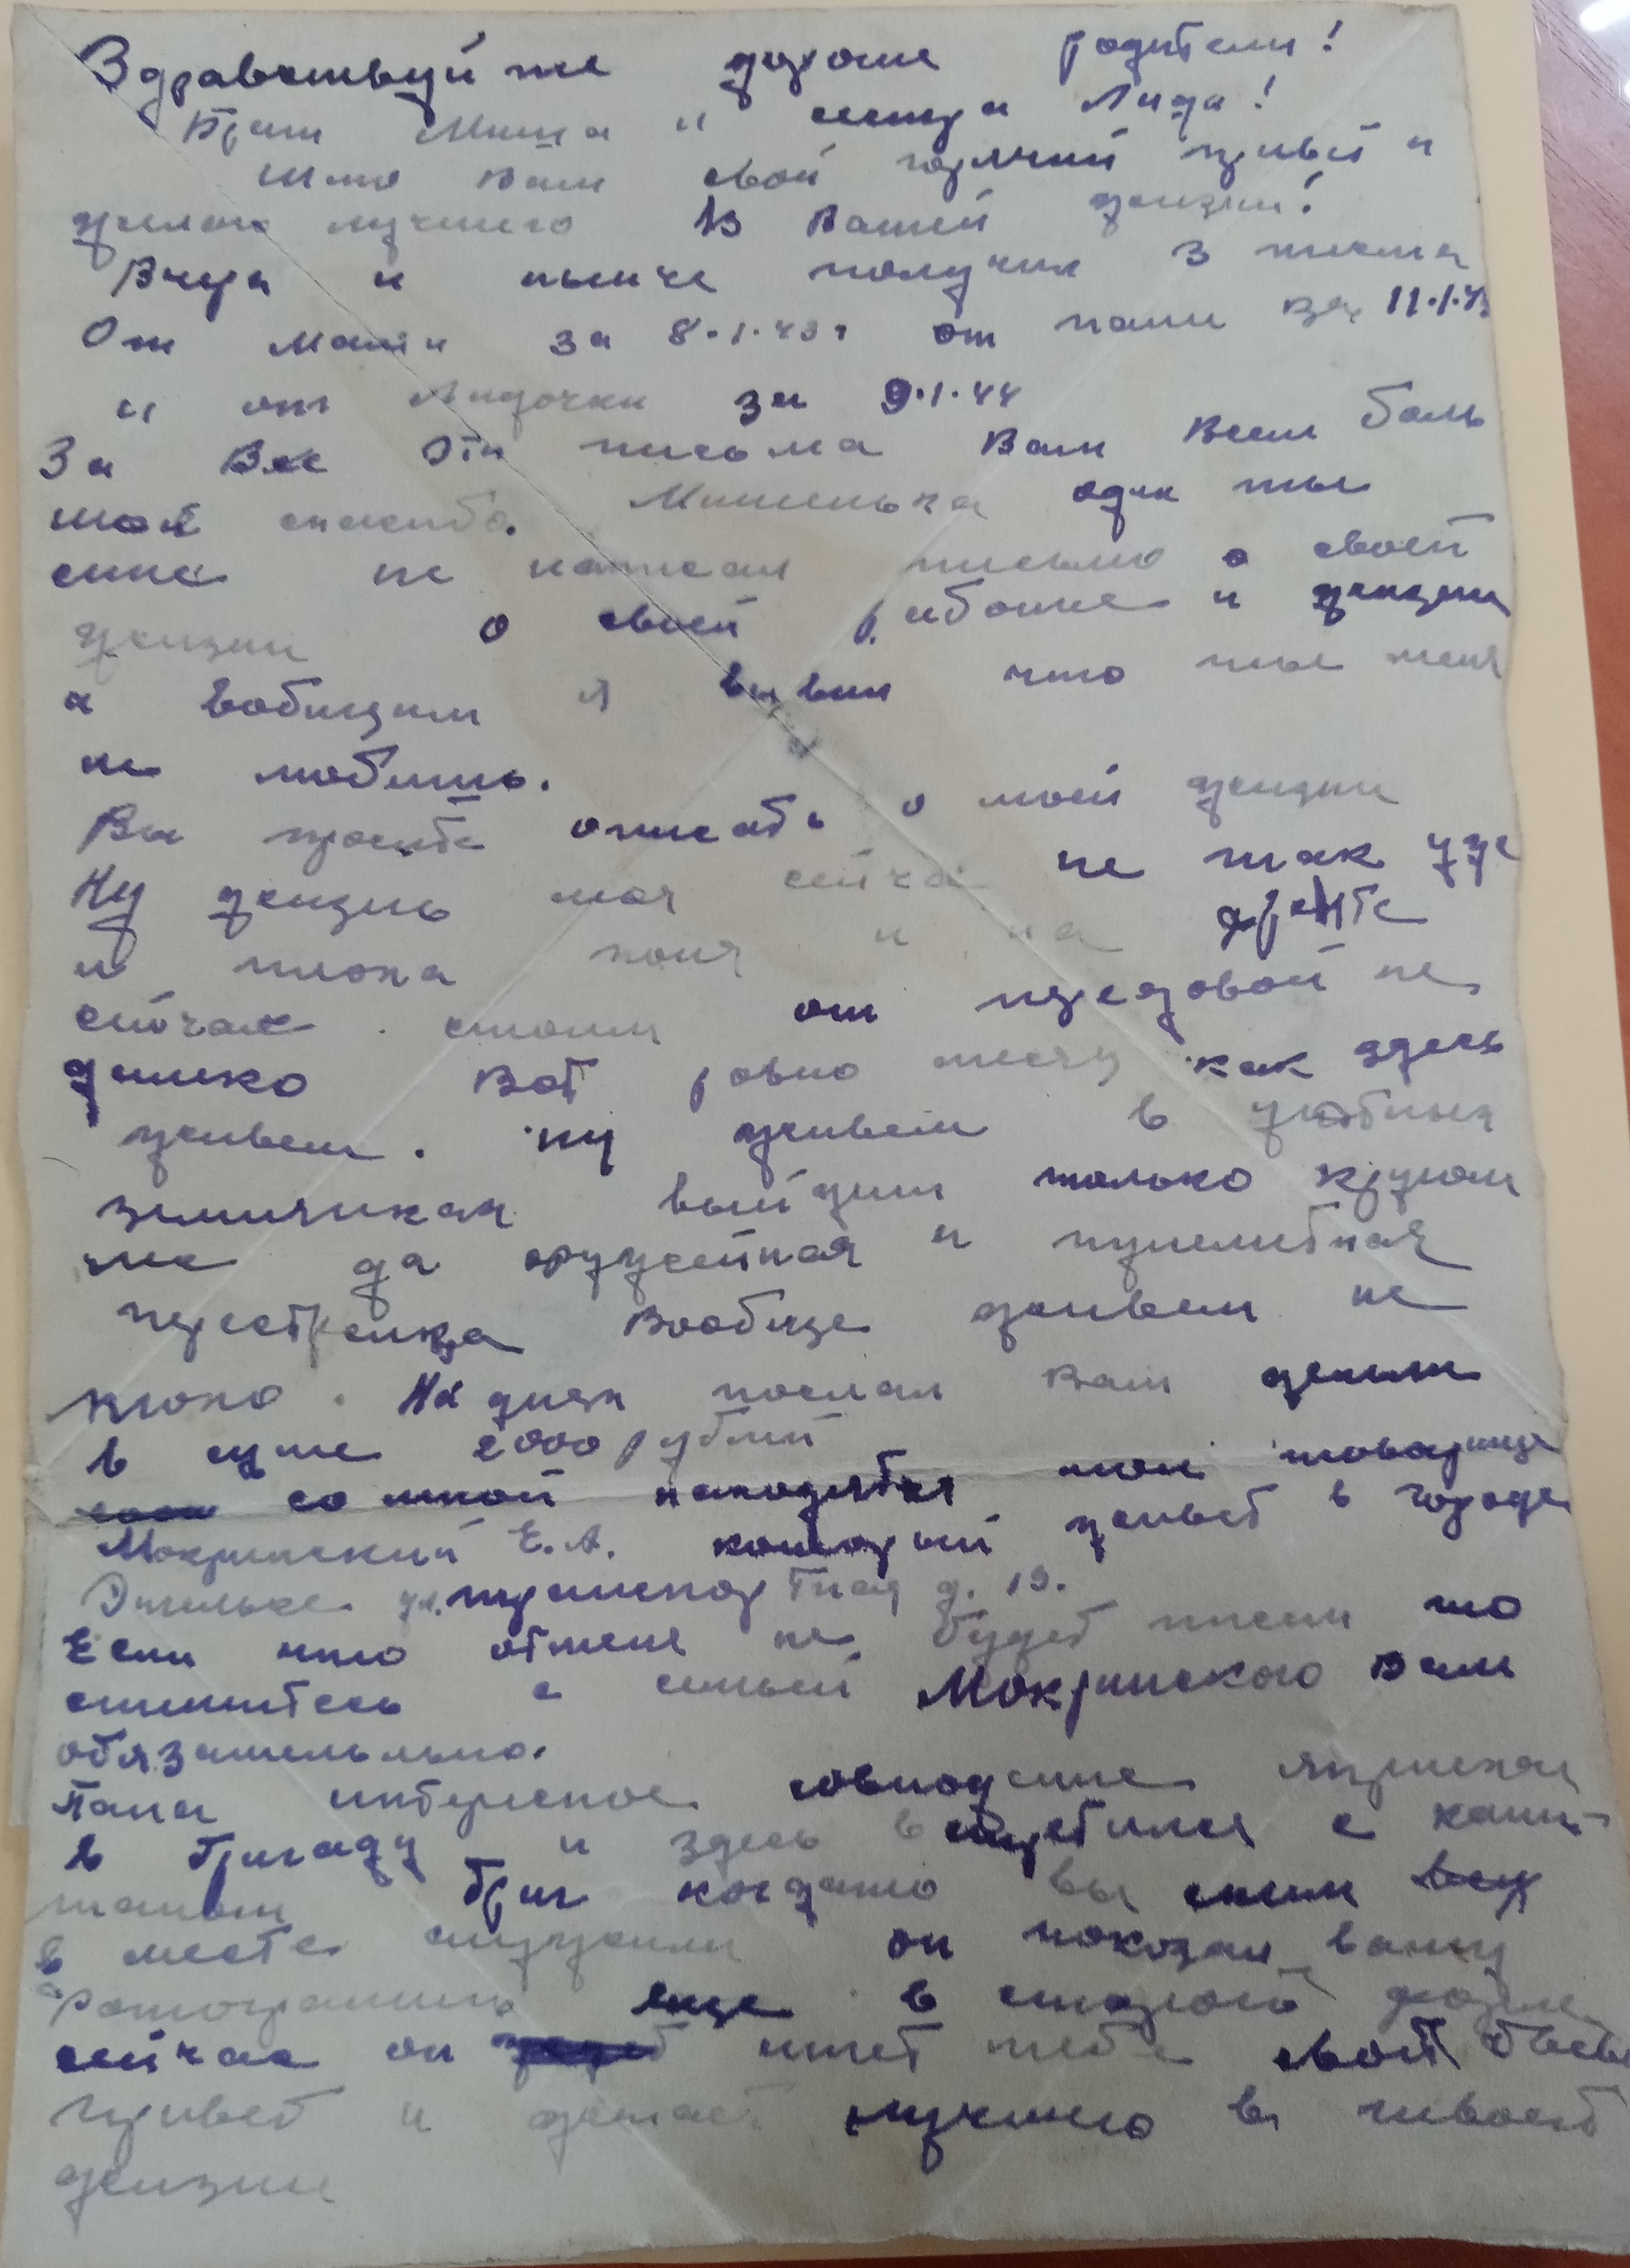 Здравствуй те дорогие родители!
Брат Миша и сестра Лида!
Шлю Вам свой горячий привет и
желаю лучшего в Вашей жизни!
Вчера и нынче получил 3 письма
От мамы за 8.1.43г от папы за 11.1.43
и от Лидочки за 9.1.44
За все эти письма Вам всем боль
шое спасибо. Мишенька один ты
мне не написал письмо о своей
жизни о своей работе и жизни
а вобщем я вывел что ты меня
не любишь.
Вы просите описать о моей жизни
Ну жизнь моя сейчас не так уже
и плоха хотя и на фронте
сейчас стоим от передовой не
далеко Вот ровно месяц как здесь
живем. ну живем в
землянках выйдеш только кругом
да оружейная и пулеметная
перестрелка Вообще живем не
плохо. На днях послал Вам деньги
в суме 2000 рублей
со мной находятся мой товарищ
Мокринский Е.А. который живет в городе
Энгельсе ул. транспортная д. 19.
Если что от меня не будет писем то
спишитесь с семьей Мокринского Вам
обязательно.
Папа интересное совпадение я приехал
в бригаду и здесь встретился с капи-
таном когда-то вы с ним
в месте служили он показал вашу
фотограмию еще в старой форме
сейчас он шлет тебе свой
привет и желает лучшего в
жизни